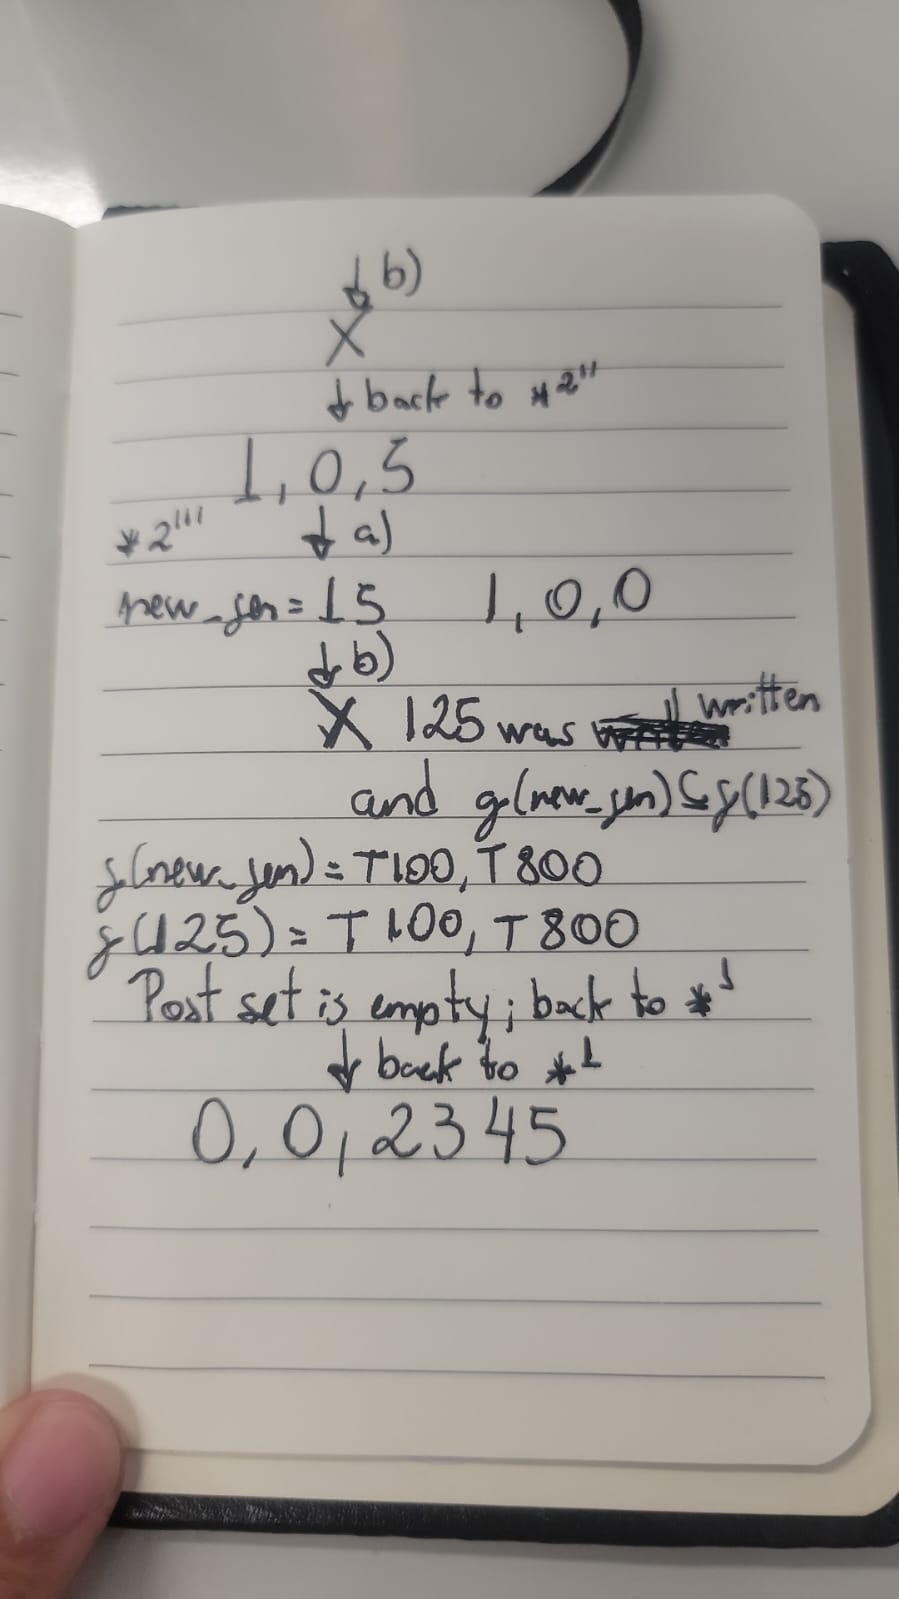 ↓ b)
X
↓ back to *2''
1, 0, 5
*2''' ↓ a)
new_gen = 15 1, 0, 0
↓ b)
X 125 was written
and g(new_gen) ⊆ g(125)
g(new_gen) = T100, T800
g(125) = T100, T800
Post set is empty; back to *1
↓ back to *1
0, 0, 2345